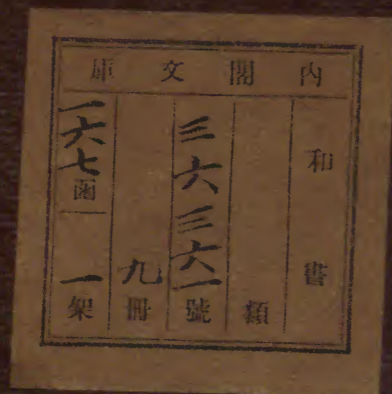 內閣文庫
和書
類
三六三六一號
九冊
一六七函
一架